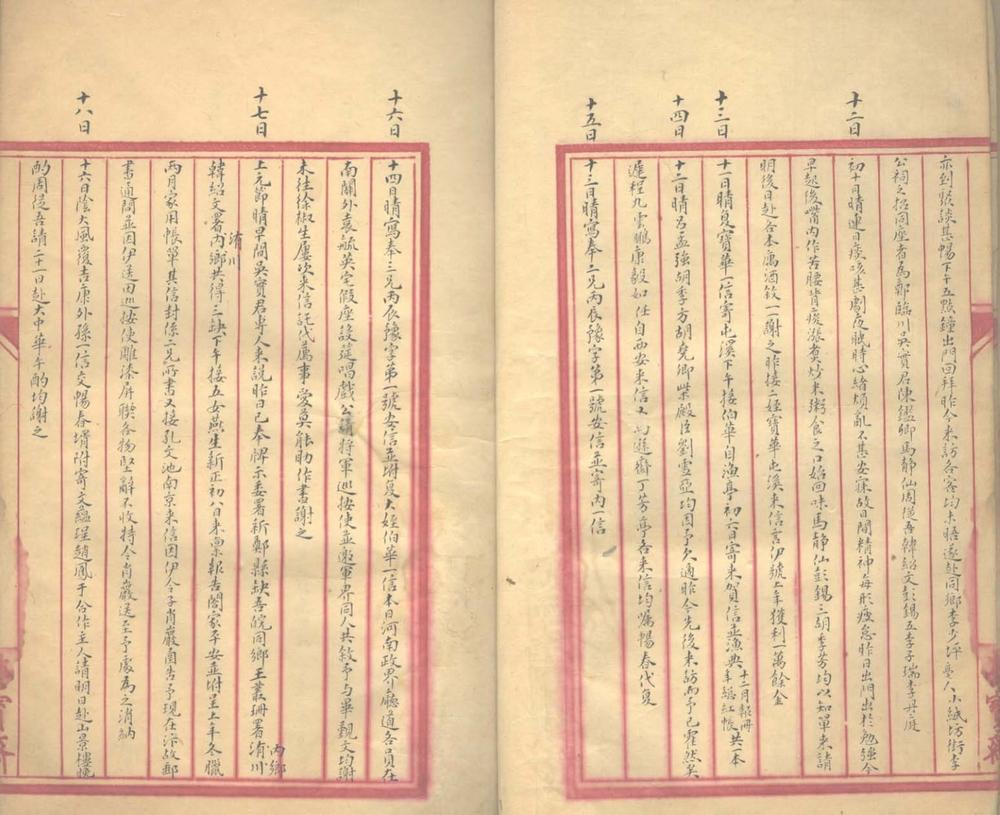 亦到緊談甚暢下午五點鐘出門回拜昨今來訪各客均未晤遂赴同鄉李少坪亳人小紙坊街李
公祠之招同座者為鄭臨川吳實君陳鑑卿馬靜仙周從吾韓紹文彭錫五李子瑞李丹庭
十二日
初十日晴連日痰咳甚劇夜眠時心緒煩亂不甚安寐故日間精神每形疲怠昨日出門出於勉強今
早起後嘗內作苦腰背痠漲煮炒米粥食之口始回味馬靜仙彭錫三胡季芳均以知單來請
明後日赴合本屬酒敘一一謝之昨接二姪寶華屯溪來信言伊號上年獲利一萬餘金
十三日
十一日晴复寶華一信寄屯溪下午接伯華自漁亭初六日寄來賀信並漁典十二月報冊年總紅帳共一本
十四日
十二日晴呂孟強胡季方胡堯卿柴殿臣劉雪亞均因予欠適昨今先後來訪而予已霍然矣
遲程九雲鵬康毅如任自西安來信丁芳亭各來信均囑暢春代复
十五日
十三日晴寫奉二兄丙辰豫字第一號安信並寄丙一信
十六日
十四日晴寫奉三兄丙辰豫字第一號安信並附复大姪伯華一信本日河南政界廳道各員在
南關外袁毓英宅假座設筵唱戲公請將軍巡按使並邀軍界同人共敘予与畢覲文均謝
未往徐椒生屢次來信託代薦事愛莫能助作書謝之
十七日
上元節晴早間吳實君專人來說昨日已奉牌示委署新鄭縣缺吾皖同鄉王叢珊署洧川內鄉
韓紹文署內鄉洧川共得三缺下午接五女燕生新正初八日來稟報告閤家平安並附呈上年冬臘
兩月家用帳單其信封係二兄所書又接孔文池南京來信因伊令子肖巖函告予現在汴故郵
書通問並因伊送田巡按使雕漆屏聯各物堅辭不收持令肖巖送至予處為之消納
十八日
十六日陰大風覆吉康外孫一信交暢春壻附寄文蘊瑆趙鳳于合作主人請明日赴山景樓晚
酌周從吾請二十一日赴大中華午酌均謝之